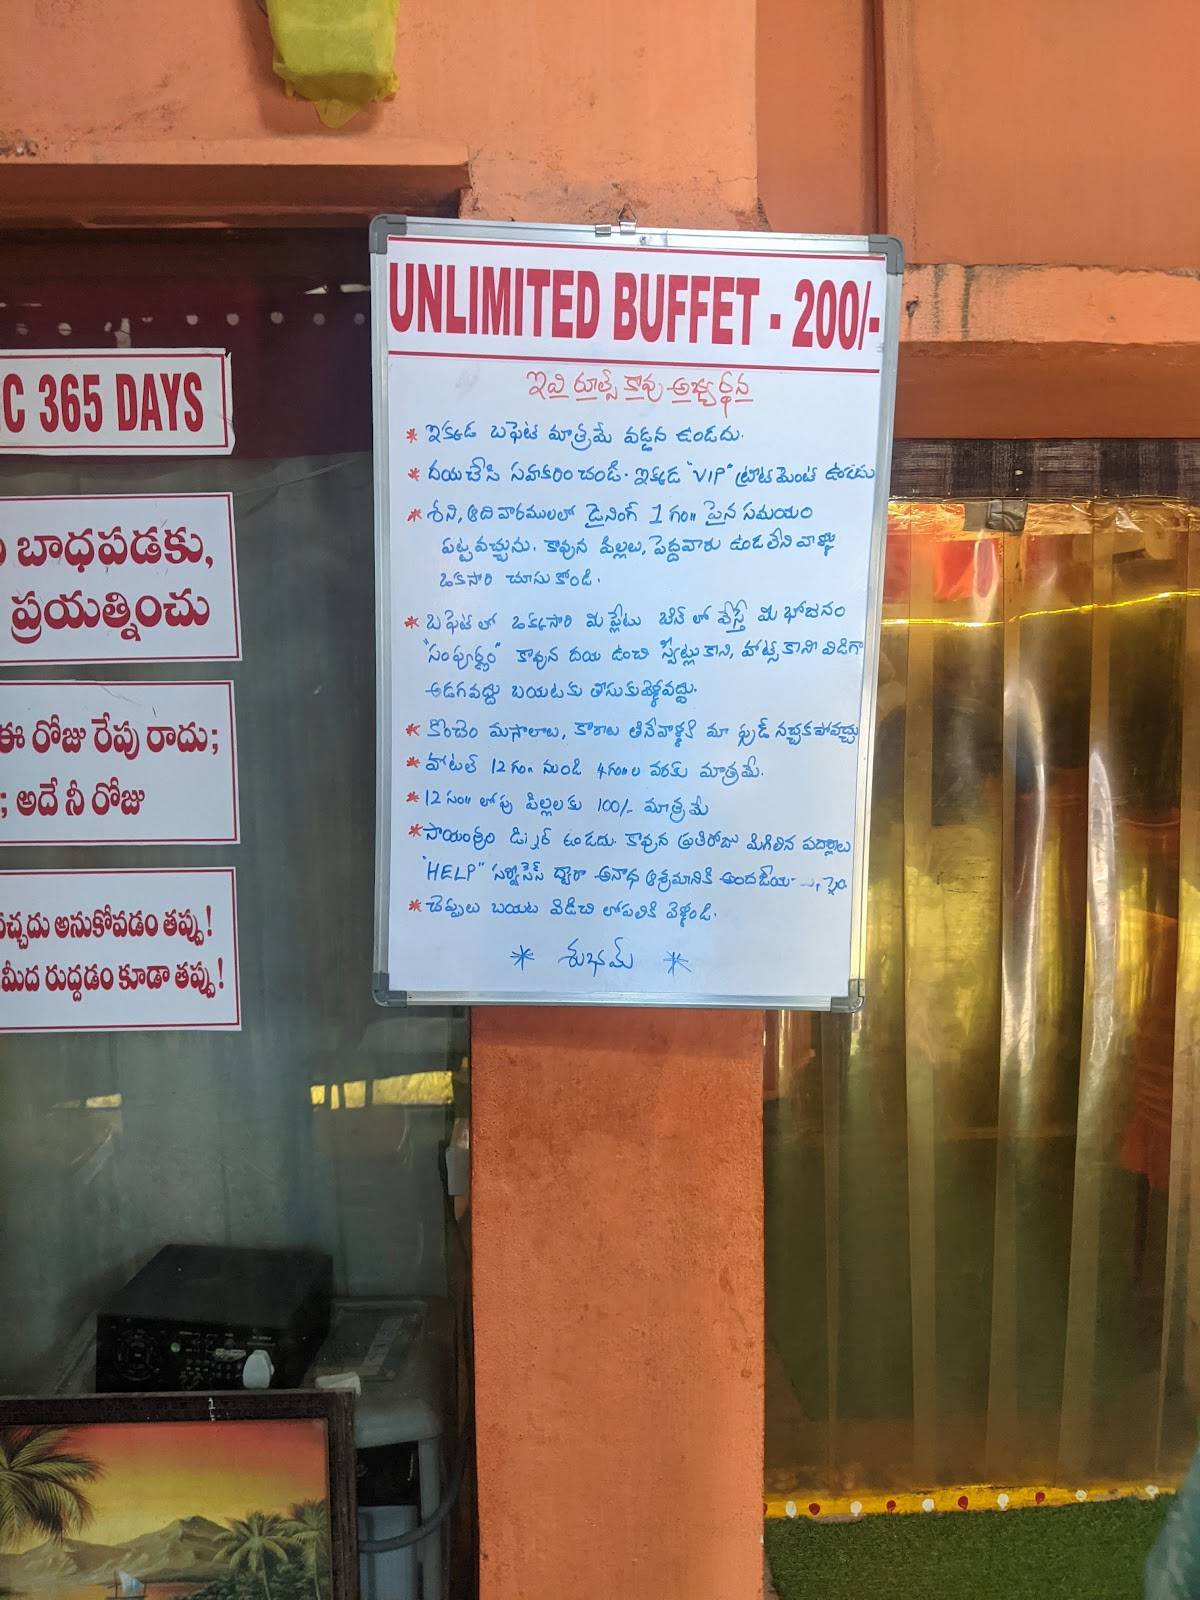 C 365 DAYS
బాధపడకు,
ప్రయత్నించు
ఈ రోజు రేపు రాదు;
; అదే నీ రోజు
అనుకోవడం తప్పు!
మీద రుద్దడం కూడా తప్పు!
UNLIMITED BUFFET - 200/-
ఇవి రూల్స్ కావు అభ్యర్థన
* ఇక్కడ బఫెట్ మాత్రమే వడ్డన ఉండదు.
* దయచేసి సహకరించండి. ఇక్కడ "VIP" ట్రీట్‌మెంట్ ఉండదు
* శని, ఆది వారములలో డైనింగ్ 1 గం॥ పైన సమయం
పట్టవచ్చును. కావున పిల్లలు, పెద్దవారు ఉండలేని వాళ్ళు
ఒకసారి చూసుకోండి.
* బఫెట్ లో ఒక్కసారి మీ ప్లేటు బిన్ లో వేస్తే మీ భోజనం
"సంపూర్ణం" కావున దయ ఉంచి స్వీట్లు కాని, హాట్స్ కాని విడిగా
అడగవద్దు బయటకు తీసుకువెళ్ళవద్దు.
* కొంచెం మసాలాలు, కారాలు తినేవాళ్ళకి మా ఫుడ్ నచ్చకపోవచ్చు
* హోటల్ 12 గం॥ నుండి 4 గం॥ల వరకు మాత్రమే.
* 12 సం॥ లోపు పిల్లలకు 100/- మాత్రమే
* సాయంత్రం ఉండదు. కావున ప్రతిరోజు మిగిలిన పదార్థాలు
"HELP" సర్వీసెస్ ద్వారా అనాధ ఆశ్రమానికి
* చెప్పులు బయట విడిచి లోపలికి వెళ్ళండి.
* శుభమ్ *